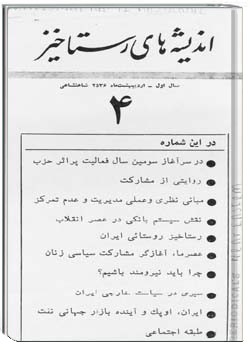 اندیشه های رستاخیز
سال اول - اردیبهشت‌ماه ۲۵۳۶ شاهنشاهی
۴
در این شماره
در سرآغاز سومین سال فعالیت پراثر حزب
روایتی از مشارکت
مبانی نظری و عملی مدیریت و عدم تمرکز
نقش سیستم بانکی در عصر انقلاب
رستاخیز روستائی ایران
عصر ما، آغازگر مشارکت سیاسی زنان
چرا باید نیرومند باشیم؟
سیری در سیاست خارجی ایران
ایران، اوپک و آینده بازار جهانی نفت
طبقه اجتماعی